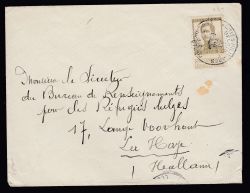 Monsieur le Directeur
du Bureau de Renseignements
pour les Réfugiés belges
17, Lange Voorhout
La Haye
(Hollam)